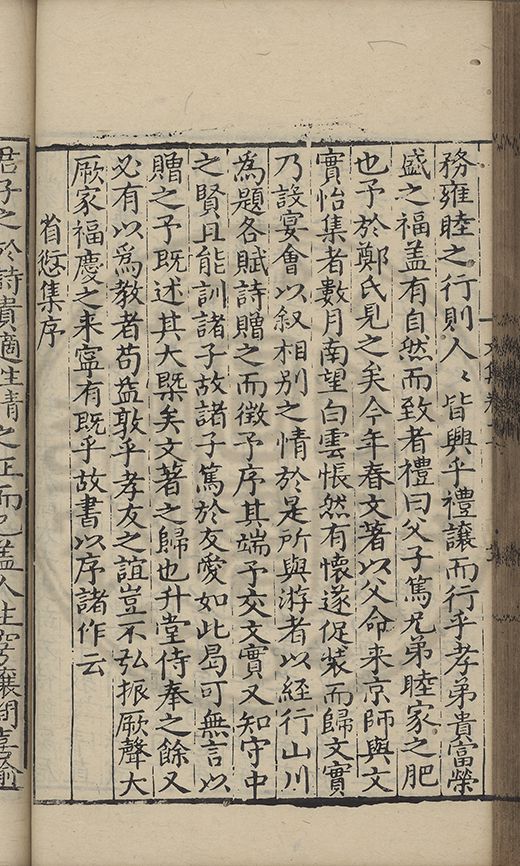 務雍睦之行則人〻皆興乎禮讓而行乎孝弟貴富榮
盛之福盖有自然而致者禮曰父子篤兄弟睦家之肥
也予於鄭氏見之矣今年春文著以父命来京師與文
實怡集者數月南望白雲悵然有懷遂促装而歸文實
乃設宴會以叙相别之情於是所與游者以經行山川
為題各賦詩贈之而徴予序其端予交文實又知守中
之賢且能訓諸子故諸子篤於友愛如此曷可無言以
贈之予既述其大槩矣文著之歸也升堂侍奉之餘又
必有以爲教者苟益敦乎孝友之誼豈不弘振厥聲大
厥家福慶之来寧有既乎故書以序諸作云
省愆集序
君子之於詩貴適性情之正而已盖人生